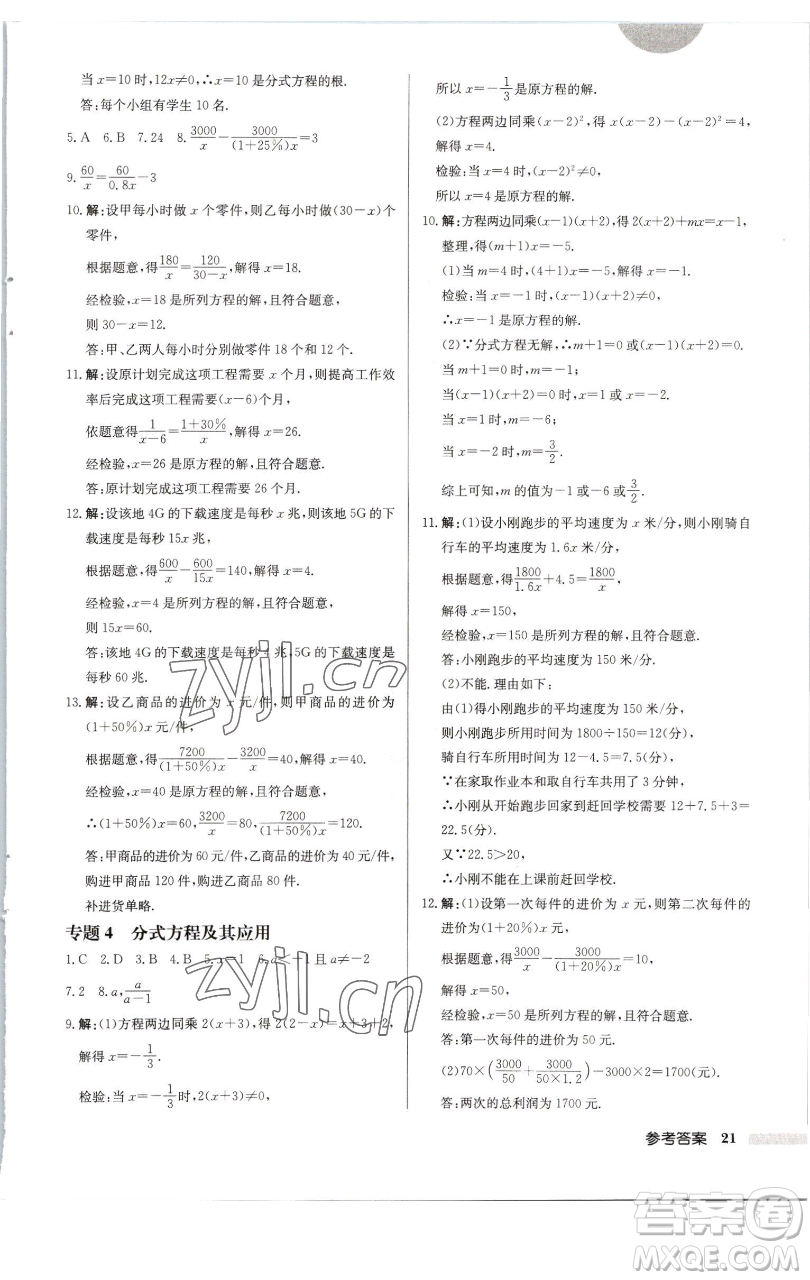 当 x=10 时,12x≠0,∴x=10 是分式方程的根.
答:每个小组有学生 10 名.
5. A 6. B 7. 24 8. 3000/x − 3000/((1+25%)x) = 3
9. 60/x = 60/(0.8x) − 3
10. 解:设甲每小时做 x 个零件,则乙每小时做(30−x)个
零件,
根据题意,得 180/x = 120/(30−x),解得 x=18.
经检验,x=18 是所列方程的解,且符合题意,
则 30−x=12.
答:甲、乙两人每小时分别做零件 18 个和 12 个.
11. 解:设原计划完成这项工程需要 x 个月,则提高工作效
率后完成这项工程需要(x−6)个月,
依题意得 1/(x−6) = (1+30%)/x,解得 x=26.
经检验,x=26 是原方程的解,且符合题意.
答:原计划完成这项工程需要 26 个月.
12. 解:设该地 4G 的下载速度是每秒 x 兆,则该地 5G 的下
载速度是每秒 15x 兆,
根据题意,得 600/x − 600/(15x) = 140,解得 x=4.
经检验,x=4 是所列方程的解,且符合题意,
则 15x=60.
答:该地 4G 的下载速度是每秒 4 兆,5G 的下载速度是
每秒 60 兆.
13. 解:设乙商品的进价为 x 元/件,则甲商品的进价为
(1+50%)x 元/件,
根据题意,得 7200/((1+50%)x) − 3200/x = 40,解得 x=40.
经检验,x=40 是原方程的解,且符合题意.
∴(1+50%)x=60, 3200/x = 80, 7200/((1+50%)x) = 120.
答:甲商品的进价为 60 元/件,乙商品的进价为 40 元/件,
购进甲商品 120 件,购进乙商品 80 件.
补进货单略.
专题 4 分式方程及其应用
1. C 2. D 3. B 4. B 5. x=1 6. a<−1 且 a≠−2
7. 2 8. a, a/(a−1)
9. 解:(1)方程两边同乘 2(x+3),得 2(2−x)=x+3+2,
解得 x=−1/3.
检验:当 x=−1/3 时,2(x+3)≠0,
所以 x=−1/3 是原方程的解.
(2)方程两边同乘(x−2)²,得 x(x−2)−(x−2)²=4,
解得 x=4.
检验:当 x=4 时,(x−2)²≠0,
所以 x=4 是原方程的解.
10. 解:方程两边同乘(x−1)(x+2),得 2(x+2)+mx=x−1,
整理,得(m+1)x=−5.
(1)当 m=4 时,(4+1)x=−5,解得 x=−1.
检验:当 x=−1 时,(x−1)(x+2)≠0,
∴x=−1 是原方程的解.
(2)∵分式方程无解,∴m+1=0 或(x−1)(x+2)=0.
当 m+1=0 时,m=−1;
当(x−1)(x+2)=0 时,x=1 或 x=−2.
当 x=1 时,m=−6;
当 x=−2 时,m=3/2.
综上可知,m 的值为−1 或−6 或 3/2.
11. 解:(1)设小刚跑步的平均速度为 x 米/分,则小刚骑自
行车的平均速度为 1.6x 米/分,
根据题意,得 1800/(1.6x) + 4.5 = 1800/x,
解得 x=150,
经检验,x=150 是所列方程的解,且符合题意.
答:小刚跑步的平均速度为 150 米/分.
(2)不能.理由如下:
由(1)得小刚跑步的平均速度为 150 米/分,
则小刚跑步所用时间为 1800÷150=12(分),
骑自行车所用时间为 12−4.5=7.5(分),
∵在家取作业本和取自行车共用了 3 分钟,
∴小刚从开始跑步回家到赶回学校需要 12+7.5+3=
22.5(分).
又∵22.5>20,
∴小刚不能在上课前赶回学校.
12. 解:(1)设第一次每件的进价为 x 元,则第二次每件的
进价为(1+20%)x 元,
根据题意,得 3000/x − 3000/((1+20%)x) = 10,
解得 x=50.
经检验,x=50 是所列方程的解,且符合题意.
答:第一次每件的进价为 50 元.
(2)70×(3000/50 + 3000/(50×1.2)) −3000×2=1700(元).
答:两次的总利润为 1700 元.
参考答案 21
zyjl.cn
zyjl.cn
答案圈
MXQE.COM